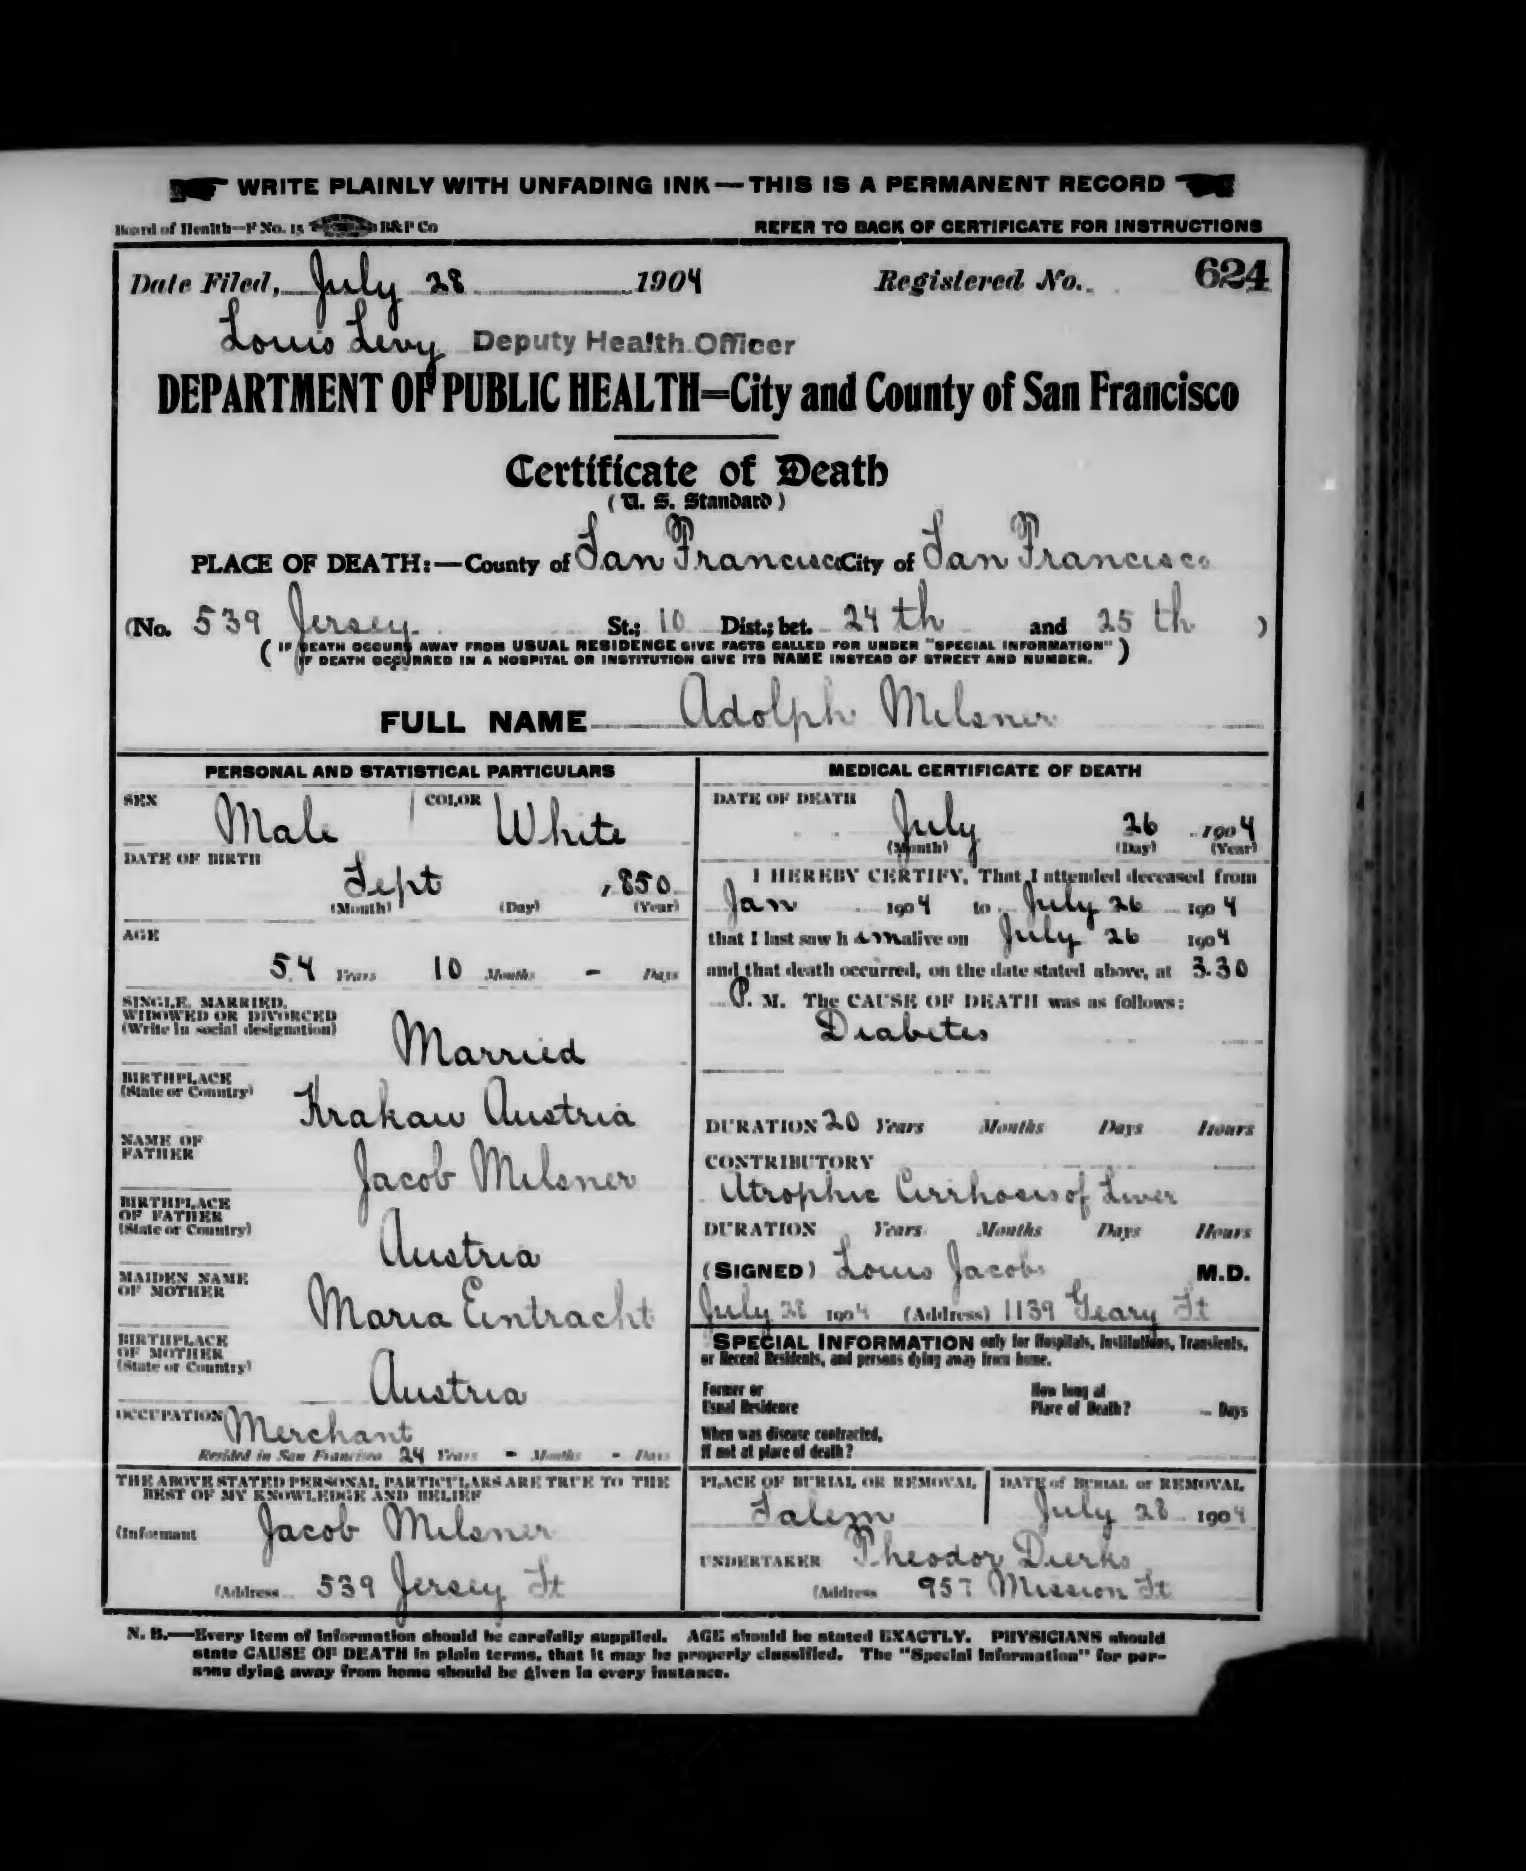 WRITE PLAINLY WITH UNFADING INK—THIS IS A PERMANENT RECORD
Board of Health—F No. 15 B&P Co REFER TO BACK OF CERTIFICATE FOR INSTRUCTIONS
Date Filed, July 28 1904 Registered No. 624
Louis Levy Deputy Health Officer
DEPARTMENT OF PUBLIC HEALTH=City and County of San Francisco
Certificate of Death
(U. S. Standard)
PLACE OF DEATH:—County of San Francisco City of San Francisco
(No. 539 Jersey St.; 10 Dist.; bet. 24th and 25th )
( IF DEATH OCCURS AWAY FROM USUAL RESIDENCE GIVE FACTS CALLED FOR UNDER "SPECIAL INFORMATION" )
( IF DEATH OCCURRED IN A HOSPITAL OR INSTITUTION GIVE ITS NAME INSTEAD OF STREET AND NUMBER. )
FULL NAME Adolph Milsner
PERSONAL AND STATISTICAL PARTICULARS
SEX Male COLOR White
DATE OF BIRTH
Sept 1850
(Month) (Day) (Year)
AGE
54 Years 10 Months - Days
SINGLE, MARRIED,
WIDOWED OR DIVORCED
(Write in social designation)
Married
BIRTHPLACE
(State or Country)
Krakau Austria
NAME OF
FATHER
Jacob Milsner
BIRTHPLACE
OF FATHER
(State or Country)
Austria
MAIDEN NAME
OF MOTHER
Maria Eintracht
BIRTHPLACE
OF MOTHER
(State or Country)
Austria
OCCUPATION Merchant
Resided in San Francisco 24 Years - Months - Days
THE ABOVE STATED PERSONAL PARTICULARS ARE TRUE TO THE
BEST OF MY KNOWLEDGE AND BELIEF
(Informant Jacob Milsner
(Address 539 Jersey St
MEDICAL CERTIFICATE OF DEATH
DATE OF DEATH
July 26 1904
(Month) (Day) (Year)
I HEREBY CERTIFY, That I attended deceased from
Jan 1904 to July 26 1904
that I last saw him alive on July 26 1904
and that death occurred, on the date stated above, at 3.30
P. M. The CAUSE OF DEATH was as follows:
Diabetes
DURATION 20 Years Months Days Hours
CONTRIBUTORY
Atrophic Cirrhosis of Liver
DURATION Years Months Days Hours
(SIGNED) Louis Jacobs M.D.
July 28 1904 (Address) 1139 Geary St
SPECIAL INFORMATION only for Hospitals, Institutions, Transients,
or Recent Residents, and persons dying away from home.
Former or
Usual Residence
How long at
Place of Death? Days
When was disease contracted,
If not at place of death?
PLACE OF BURIAL OR REMOVAL
Salem
DATE of BURIAL or REMOVAL
July 28 1904
UNDERTAKER Theodor Dierks
(Address 957 Mission St
N. B.—Every item of information should be carefully supplied. AGE should be stated EXACTLY. PHYSICIANS should
state CAUSE OF DEATH in plain terms, that it may be properly classified. The "Special Information" for per-
sons dying away from home should be given in every instance.